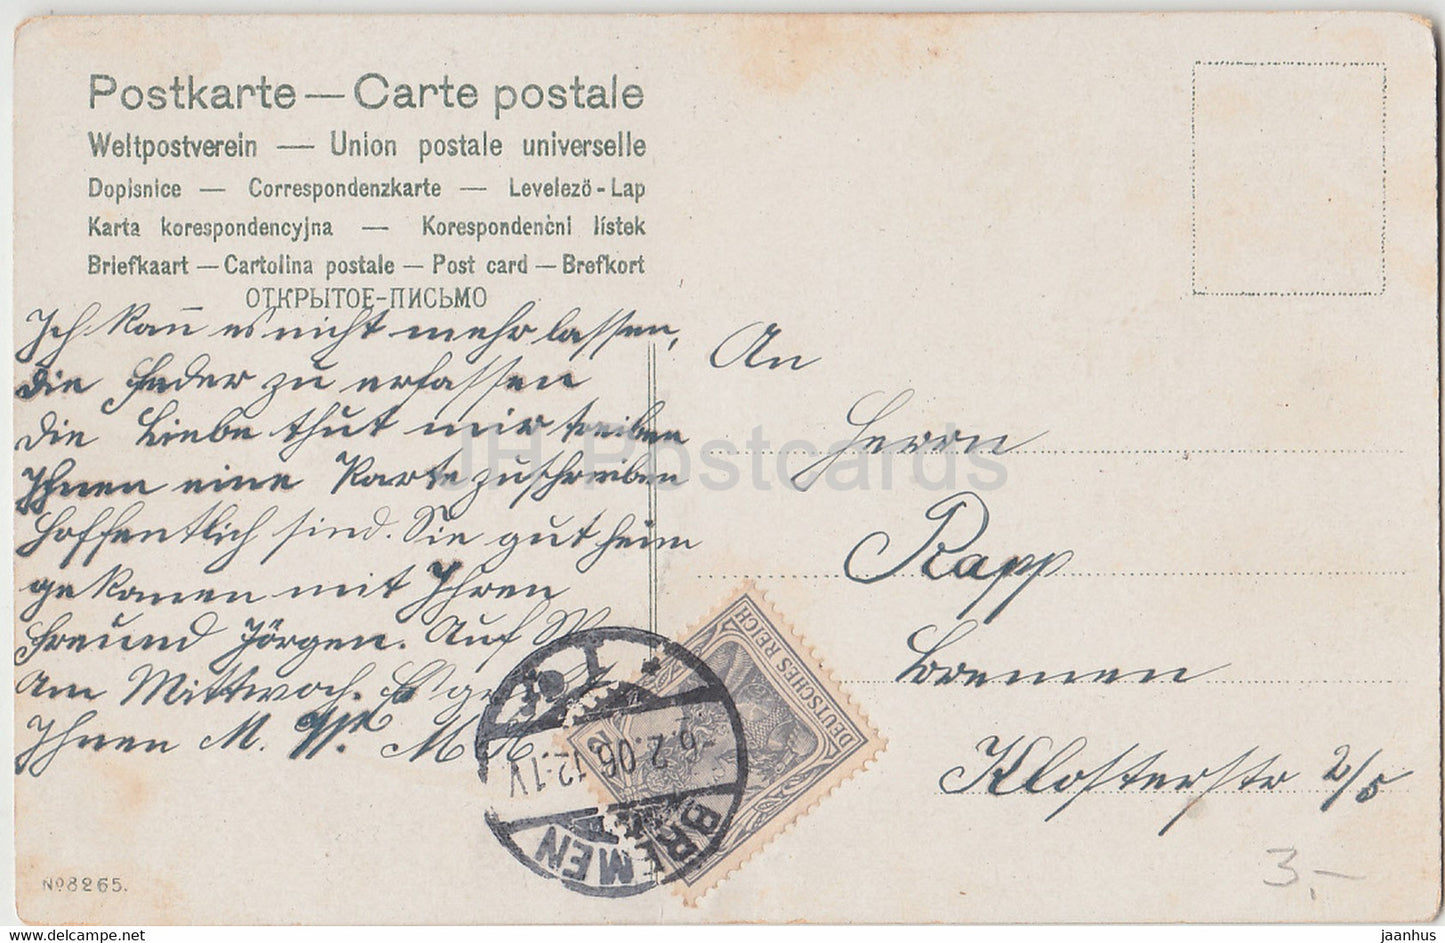 Postkarte — Carte postale
Weltpostverein — Union postale universelle
Dopisnice — Correspondenzkarte — Levelező-Lap
Karta korespondencyjna — Korespondenčni lístek
Briefkaart — Cartolina postale — Post card — Brefkort
ОТКРЫТОЕ-ПИСЬМО
Ich kan̄ es nicht mehr lassen,
die Feder zu erfassen
die Liebe thut mir treiben
Ihnen eine Karte zuschreiben
Hoffentlich sind. Sie gut heim
gekomen mit Ihren
Freund Jörgen. Auf
Am Mittwoch.
Ihnen M.
An
Herrn
Rapp
Bremen
Klosterstr 2/5
DEUTSCHES REICH
BREMEN
-6.2.06.12-1V
JH Postcards
3,-
No 8265.
www.delcampe.net
jaanhus